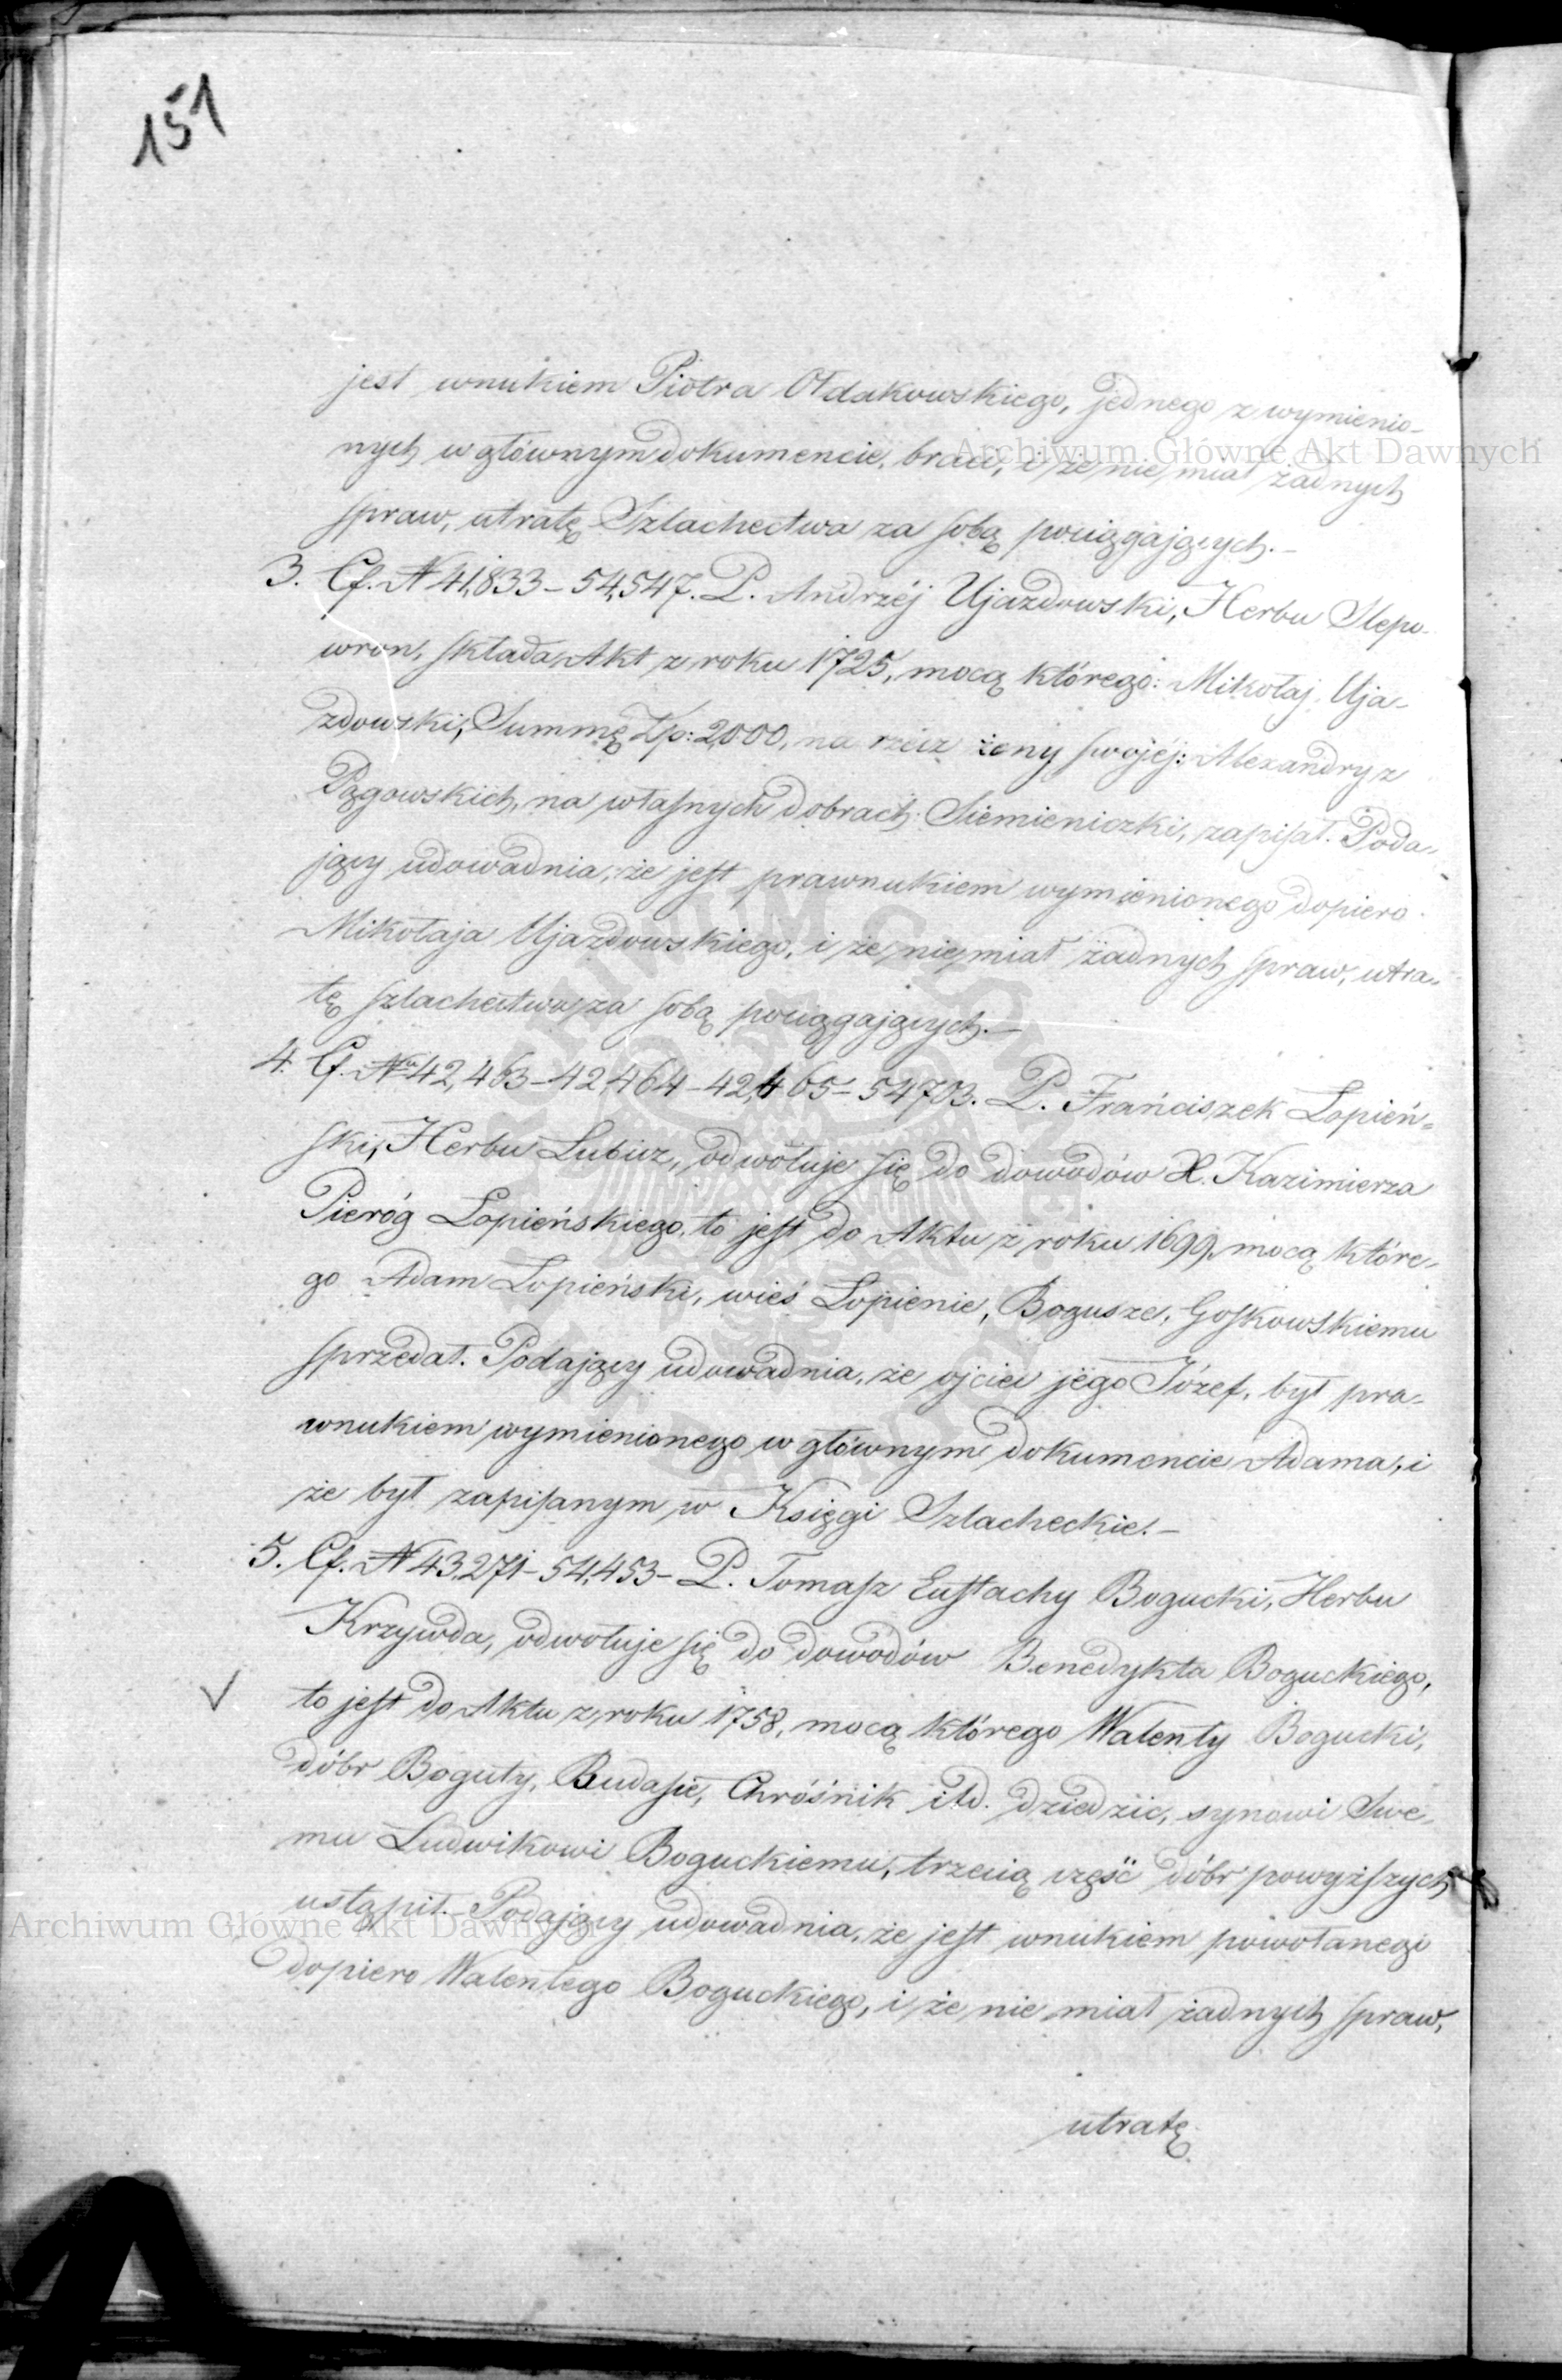 151
jest wnukiem Piotra Ołdakowskiego, jednego z wymienio-
nych w głównym dokumencie, braci, i że nie miał żadnych
spraw, utratę Szlachectwa za sobą pociągających.–
3. Cf. N 41,833 – 54,547. P. Andrzéj Ujazdowski, Herbu Slepo-
wron, składa Akt z roku 1725, mocą którego: Mikołaj Uja-
zdowski, Summę Złp: 2,000, na rzecz żony swojéj: Alexandry z
Pągowskich, na własnych dobrach: Siemieniczki, zapisał. Poda-
jący udowadnia, że jest prawnukiem wymienionego dopiero
Mikołaja Ujazdowskiego, i że nie miał żadnych spraw, utra-
tę szlachectwa za sobą pociągających.–
4. Cf. Nra 42,463 – 42,464 – 42,465 – 54703. P. Franciszek Łopień-
ski, Herbu Lubicz, odwołuje się do dowodów X. Kazimierza
Pieróg Łopieńskiego, to jest do Aktu z roku 1699, mocą które-
go Adam Łopieński, wieś Łopienie, Bogusze, Goskowskiemu
sprzedał. Podający udowadnia, że ojciec jego Józef, był pra-
wnukiem wymienionego w głównym dokumencie Adama, i
że był zapisanym w Księgi Szlacheckie.–
5. Cf. N 43,271 – 54,453 – P. Tomasz Eustachy Bogucki, Herbu
Krzywda, odwołuje się do dowodów Benedykta Boguckiego,
to jest do Aktu z roku 1758, mocą którego Walenty Bogucki,
dóbr Boguty, Rudasie, Chróśnik itd. dziedzic, synowi Swe-
mu Ludwikowi Boguckiemu, trzecią część dóbr powyższych
ustąpił. Podający udowadnia, że jest wnukiem powołanego
dopiero Walentego Boguckiego, i że nie miał żadnych spraw,
utratę
Archiwum Główne Akt Dawnych
Archiwum Główne Akt Dawnych